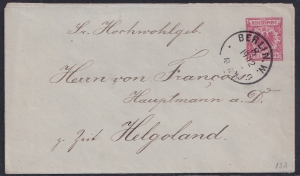 REICHSPOST
BERLIN. W.
Sr. Hochwohlgeb.
Herrn von François
Hauptmann a. D.
z. Zeit Helgoland.